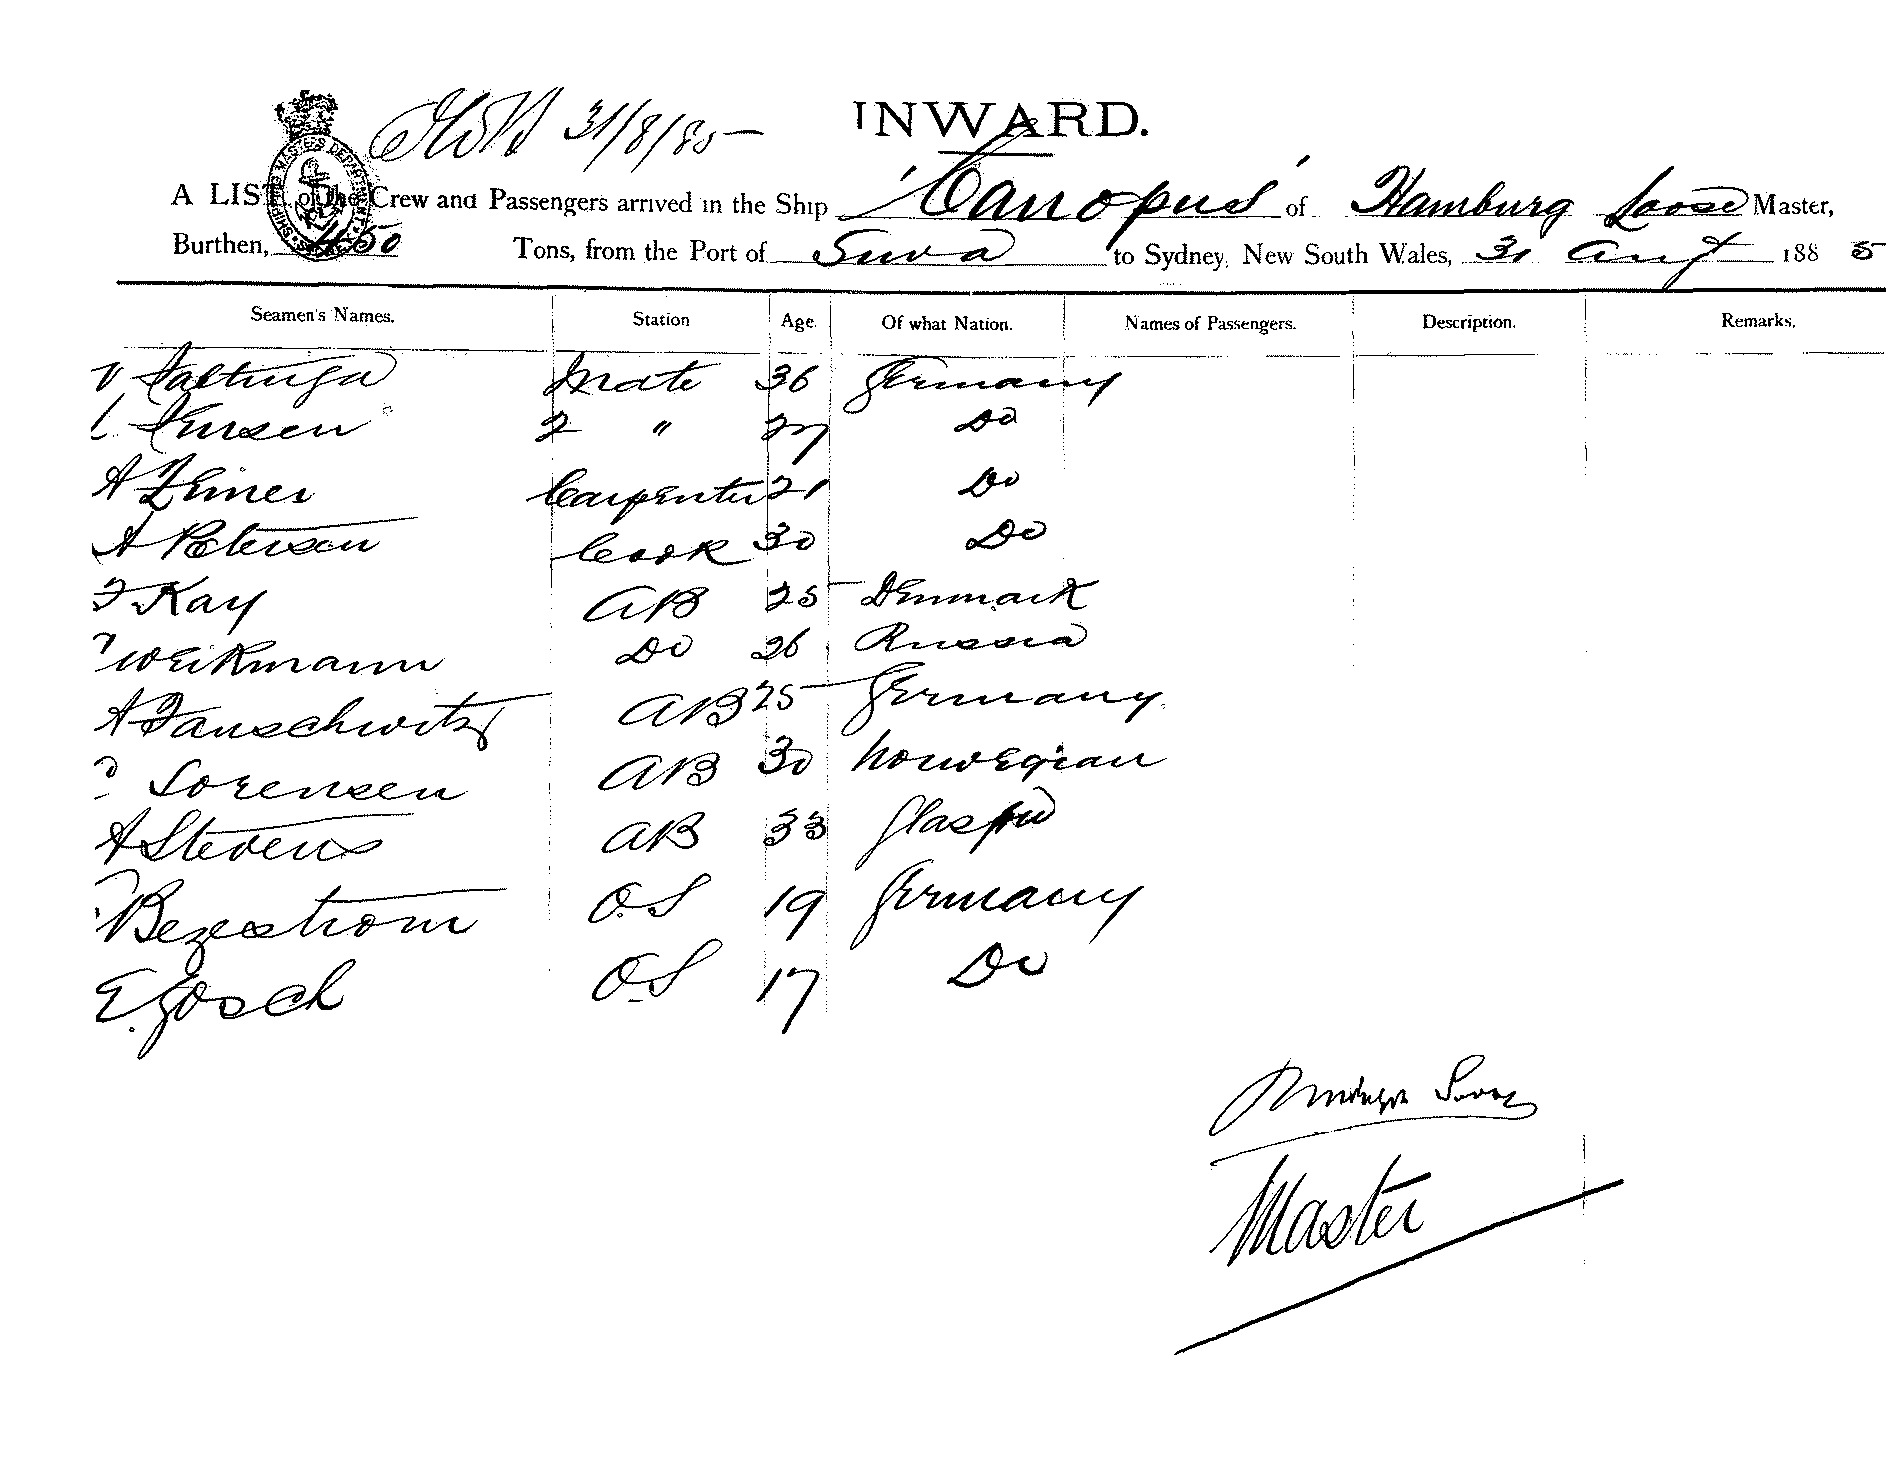 31/8/85
INWARD.
A LIST of the Crew and Passengers arrived in the Ship "Canopus" of Hamburg Loose Master,
Burthen, 450 Tons, from the Port of Suva to Sydney, New South Wales, 31 Augt 1885
Seamen's Names. Station Age. Of what Nation. Names of Passengers. Description. Remarks.
Mate 36 Germany
Jensen 2 " 27 Do
A Carpenter 21 Do
A Petersen Cook 30 Do
Kay AB 25 Denmark
Weikmann Do 26 Russia
A AB 25 Germany
Sorensen AB 30 Norwegian
A Stevens AB 33 Glasgow
OS 19 Germany
E. Gosch OS 17 Do
Master